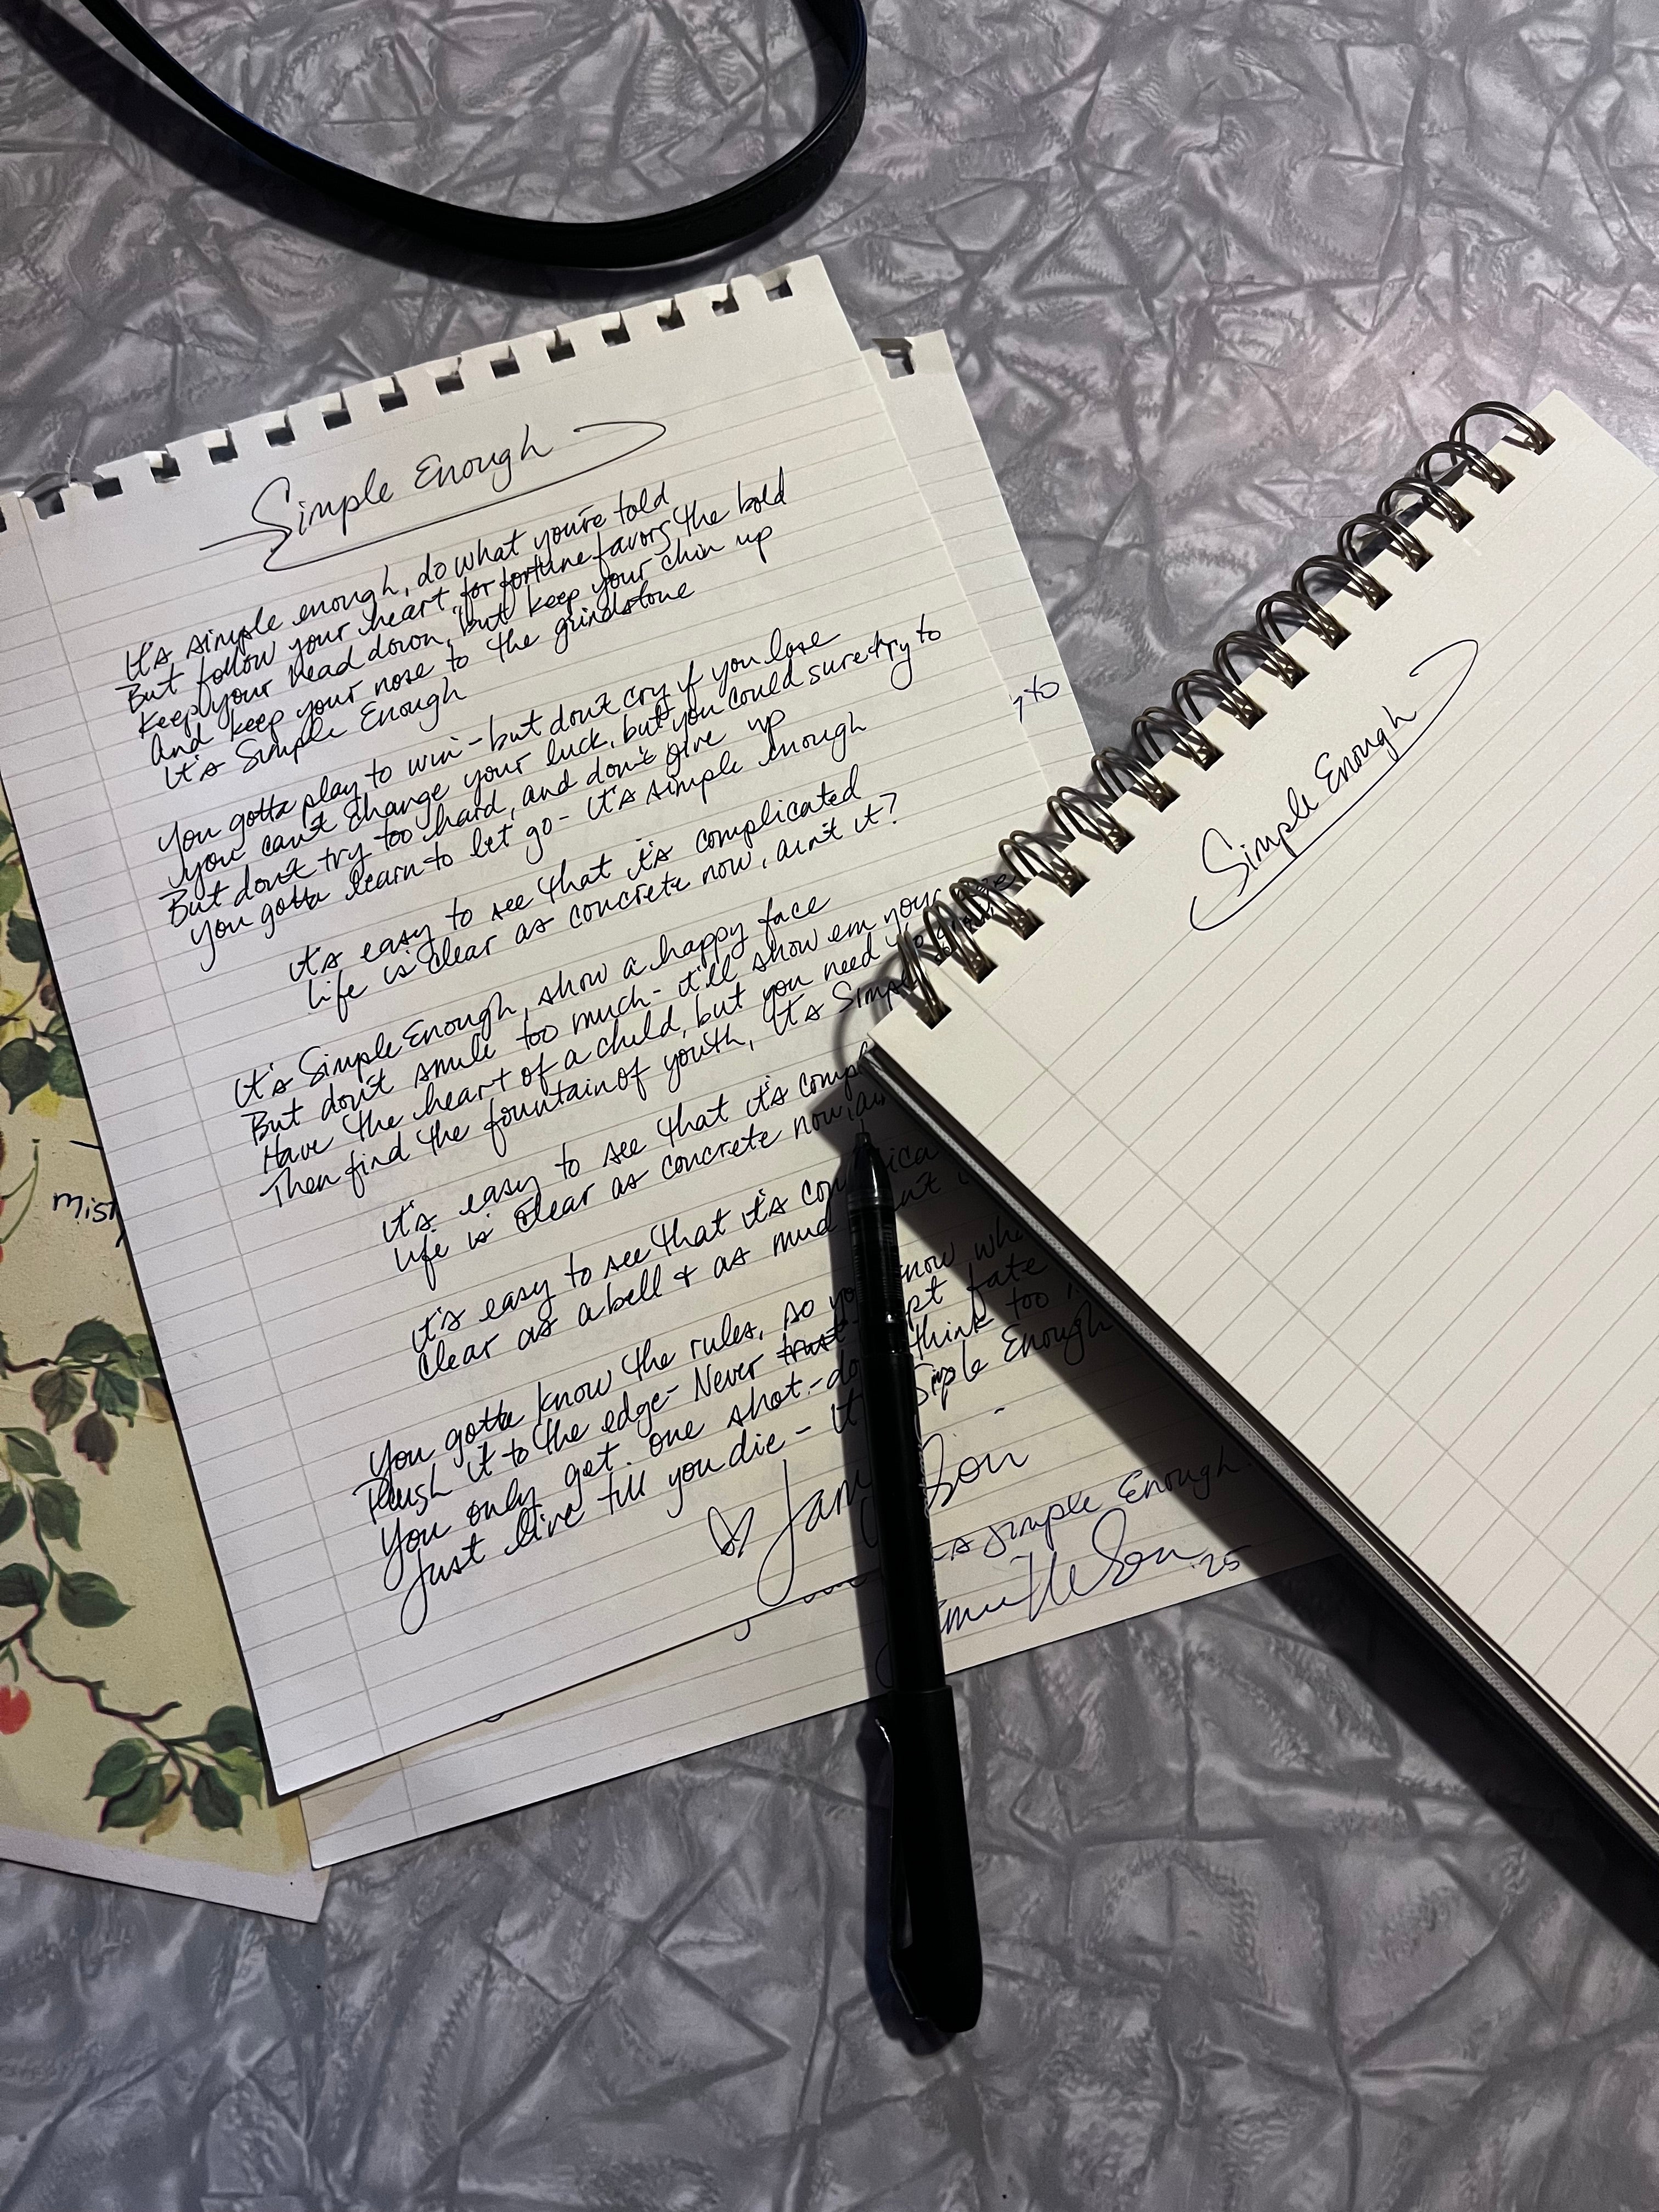 Simple Enough
It's simple enough, do what you're told
But follow your heart for fortune favors the bold
Keep your head down, but keep your chin up
And keep your nose to the grindstone
It's Simple Enough
You gotta play to win - but don't cry if you lose
you can't change your luck, but you could sure try to
But don't try too hard, and don't give up
You gotta learn to let go - it's simple enough
it's easy to see that it's complicated
Life is clear as concrete now, ain't it?
It's Simple Enough, show a happy face
But don't smile too much - it'll show em your
Have the heart of a child, but you need to
Then find the fountain of youth, It's Simple
it's easy to see that it's comp
Life is clear as concrete now,
it's easy to see that it's
Clear as a bell & as mud
You gotta know the rules, so know
Push it to the edge - Never fate
You only get one shot - think too
Just live till you die - Siple Enough
simple Enough
'25
Mist
Simple Enough